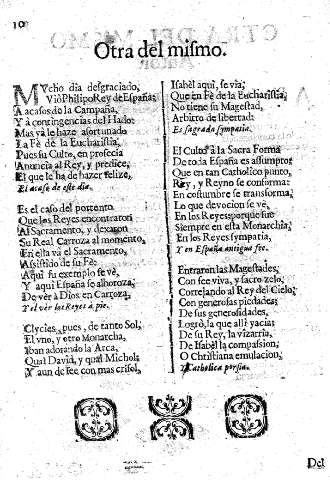 10
Otra del mismo.
MVcho dia desgraciado,
Viò Philipo Rey de España;
A acasos de la Campaña,
Y à contingencias del Hado:
Mas yà le haze afortunado
La Fè de la Eucharistia,
Pues su Culto, en profecia
Anuncia al Rey, y predice,
El que le ha de hazer felize,
El acaso de este dia.
Es el caso del portento
Que los Reyes encontraron
Al Sacramento, y dexaron
Su Real Carroza al momento,
En ella và el Sacramento,
Assistido de su Fè:
Aqui su exemplo se vè,
Y aqui España se alboroza,
De vèr à Dios en Carroza,
Y el vèr los Reyes à pie.
Clycies, pues, de tanto Sol,
El vno, y otro Monarcha,
Iban adorando la Arca,
Qual David, y qual Michol;
Y aun de fee con mas crisol,
Isabèl aqui, se via;
Que en Fè de la Eucharistia,
No tiene su Magestad,
Arbitro de libertad:
Es sagrada sympatia.
El Culto à la Sacra Forma
De toda España es assumpto;
Que en tan Catholico punto,
Rey, y Reyno se conforma:
En costumbre se transforma,
Lo que devocion se vè,
En los Reyes; porque fue
Siempre en esta Monarchia,
En los Reyes sympatia,
Y en España antigua fee.
Entraron las Magestades,
Con fee viva, y sacro zelo,
Correlando al Rey del Cielo,
Con generosas piedades;
De sus generosidades,
Logrò, la que alli yacia;
De su Rey, la vizarria,
De Isabèl la compassion,
O Christiana emulacion,
Y Catholica porfia.
Del